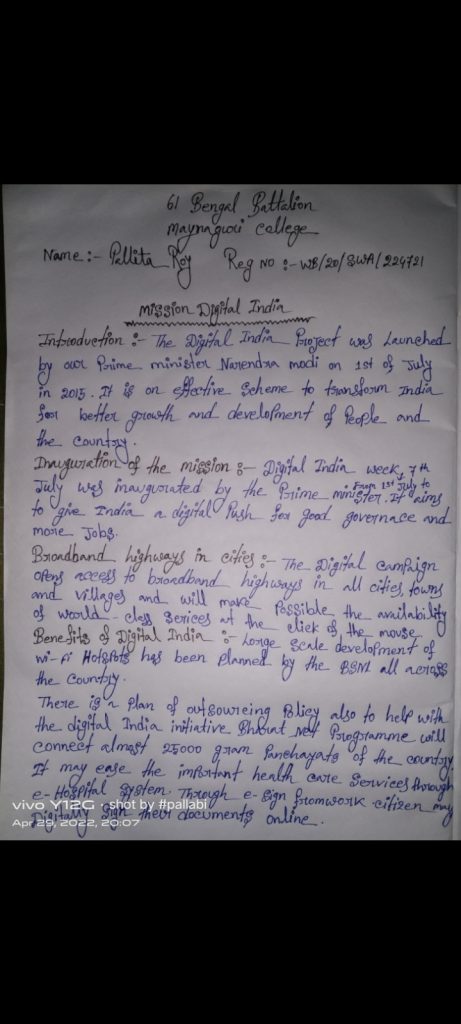 61 Bengal Battalion
Maynaguri College
Name :- Pallita Roy Reg No :- WB/20/SWA/224721
Mission Digital India
Introduction :- The Digital India Project was Launched
by our Prime minister Narendra modi on 1st of July
in 2015. It is on effective Scheme to transform India
for better growth and development of People and
the country.
Inauguration of the mission :- Digital India week, From 1st July to 7th
July was inaugurated by the Prime minister. It aims
to give India a digital Push for good governace and
more Jobs.
Broadband highways in cities :- The Digital campaign
opens access to broadband highways in all cities, towns
and villages and will make Possible the availability
of world-class Serices at the click of the mouse
Benefits of Digital India :- Large Scale development of
wi-fi Hotspots has been planned by the BSNL all across
the country.
There is a Plan of outsourcing Policy also to help with
the digital India initiative Bharat Net Programme will
connect almost 25000 gram Panchayats of the country
It may ease the important health care Services through
e-Hospital System. Through e-Sign fromwork citizen may
Digitally Sign their documents online.
vivo Y12G · shot by #pallabi
Apr 29, 2022, 20:07